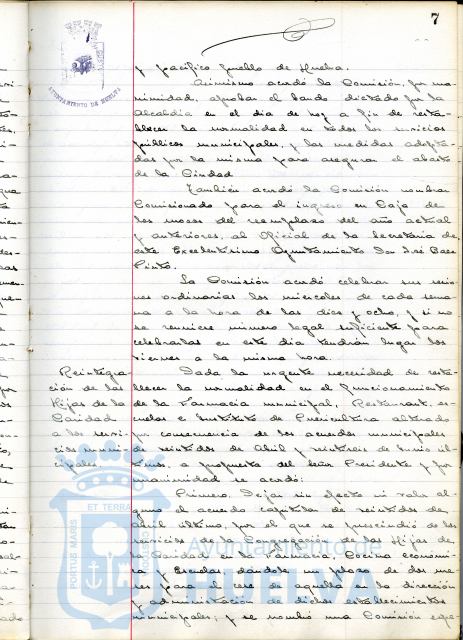 7
AYUNTAMIENTO DE HUELVA
y pacífico pueblo de Huelva.
Asimismo acordó la Comisión, por una-
nimidad, aprobar el bando dictado por la
Alcaldía en el día de hoy a fin de resta-
blecer la normalidad en todos los servicios
públicos municipales, y las medidas adopta-
das por la misma para asegurar el abasto
de la Ciudad
También acordó la Comisión nombrar
Comisionado para el ingreso en Caja de
los mozos del reemplazo del año actual
y anteriores, al Oficial de la Secretaría de
este Excelentísimo Ayuntamiento Don José Baez
Pinto.
La Comisión acordó celebrar sus sesio-
nes ordinarias los miercoles de cada sema-
na a la hora de las diez y ocho, y si no
se reuniere número legal suficiente para
celebrarlas en este día tendrán lugar los
viernes a la misma hora.
Reintegra-
ción de las
Hijas de la
Caridad
a los servi-
cios muni-
cipales
Dada la urgente necesidad de resta-
blecer la normalidad en el funcionamiento
de la Farmacia municipal, Restaurant, es-
cuelas e Instituto de Puericultura alterado
por consecuencia de los acuerdos municipales
de veintidos de Abril y veintiseis de Junio úl-
timos, a propuesta del señor Presidente y por
unanimidad se acordó:
Primero. Dejar sin efecto ni valor al-
guno el acuerdo capitular de veintidos de
Abril último, por el que se prescindió de los
servicios de la Congregación de las Hijas de
la Caridad en la Farmacia, Cocina económi-
ca y Escuelas dándole un plazo de dos me-
ses para el cese de aquella en la dirección
y administración de dichos establecimientos
municipales; y se nombró una Comisión espe-
PORTUS MARIS ET TERRAE
Ayuntamiento de
HUELVA